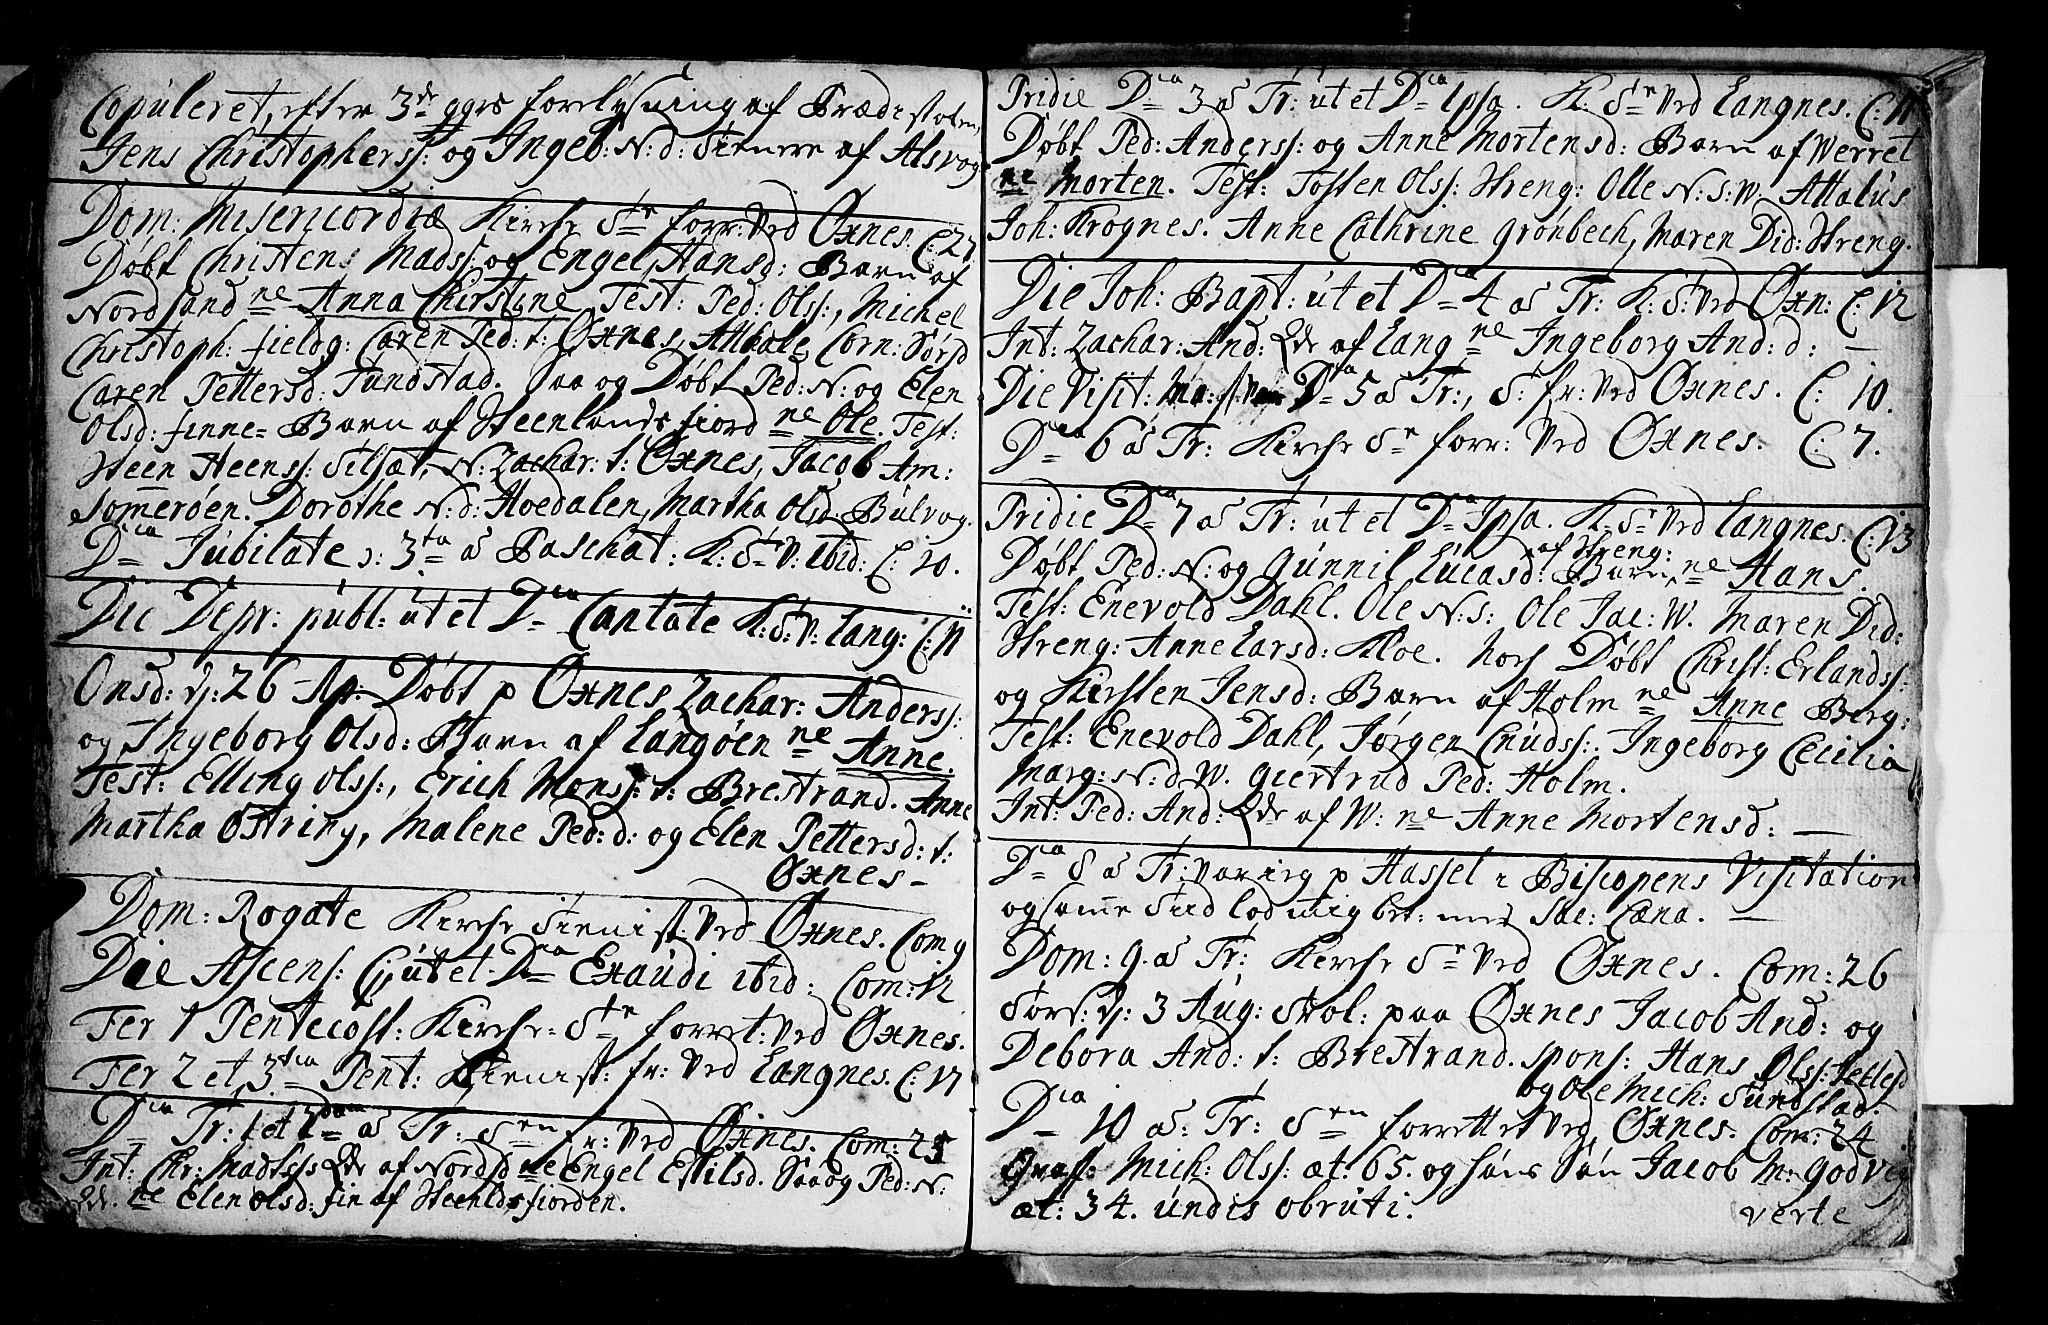 Copuleret, efter 3de ggrs forelysning af Prædi stolen,
Jens Christophers: og Ingeb: N: d: tienere af Alsvog
Dom: Misericordiæ Kirche Stn forr: ved Øxnes. C: 27
Døbt Christens Mads: og Engel Hansd: Barn af
Nordsand ne Anna Chirstine Test: Ped: Olss:, Michel
Christoph: fieldg: Caren Ped: t: Øxnes, Corn: Sørsd
Caren Pettersd: Tundstad. Saa og Døbt Ped: N: og Elen
Olsd: finne= Barn af Steenlandsfiord ne Ole. Test:
Steen Steenss: N: Zachar: t: Øxnes, Jacob Am:
Sommerøen. Dorothe N: d: Hoedalen, Martha Olsd: Bulvog.
Dca Jubilate: 3ta a Paschat: K: Ste v: ibid: C: 20.
Die Depr: publ: ut et Dca Cantate K: S: v: Lang: C: 11
Onsd: d: 26 Ap: Døbt p Øxnes Zachar: Anderss:
og Ingeborg Olsd: Barn af Langøen ne Anne.
Test: Elling Olss:, Erich Monss: t: Brestrand. Anne
Martha Ostriny, Malene Ped: d: og Elen Pettersd: t:
Øxnes -
Dom: Rogate Kirche tienist ved Øxnes. Com 9
Die Ascens: C: ut et Dca Exaudi ibid: Com: 12
Fer 1 Pentecost: Kirche= Ste forret: ved Øxnes.
Fer 2 et 3tia Pent: tienist: fr: ved Langnes. C: 17
Dca Tr: et 2dam a Tr: Sen fr: ved Øxnes. Com: 25
Int: Chr: Madtss: Qde af Nordsd ne Engel Estilsd. Saaog Ped: N:
Qd. ne Elen Olsd: fin af Steenldsfiorden.
Pridie Dca 3 a Tr: ut et Dca Ipsa. K: Ste ved Langnes. C: 11
Døbt Ped: Anderss: og Anne Mortensd: Barn af Werret
ne Morten. Test: Tosten Olss: Streng: Olle N: s: W. Attalus
Joh: Krognes. Anne Cathrine Grønbech, Maren Did: Streng.
Die Joh: Bapt: ut et Dca 4 a Tr: K: S: ved Øxn: C: 12
Int: Zachar: And: Qde af Lang ne Ingeborg And: d: —
Die Visit: Ma: Dca 5 a Tr:, S: fr: ved Øxnes. C: 10.
Dca 6 a Tr: Kirche Se forr: ved Øxnes. C: 7.
Pridie Dca 7 a Tr: ut et Dca Ipsa. K: Se ved Langnes. C: 13
Døbt Ped: N: og Gunnil Lucasd: Barn af Streng: ne Hans.
Test: Enevold Dahl. Ole N: s: Ole Jac: W. Maren Did:
Streng: Anne Larsd: Kloe. noch Døbt Christ: Erlandss:
og Kirsten Jensd: Barn af Holm ne Anne Berg:
Test: Enevold Dahl, Jørgen Cnudss:. Ingeborg Cecilia
Marg: N: d W. Giertrud Ped: Holm.
Int: Ped: And: Qde af W: ne Anne Mortensd: —
Dca 8 a Tr: var ieg p Hassel i Biscopens Visitation
og samme tiid lod mig bet: med Sac: Cæna. —
Dom: 9. a Tr: Kirche Se ved Øxnes. Com: 26
Tors: d: 3 Aug: trol: paa Øxnes Jacob And: og
Debora And: t: Brestrand. spons: Hans Olss:
og Ole Mich: Tundstad.
Dca 10 a: Tr: Sen forrettet ved Øxnes. Com: 24
Graff: Mich: Olss: æt: 65. og hans Søn Jacob M: Godvig
æt: 34. undis obruti.
verte